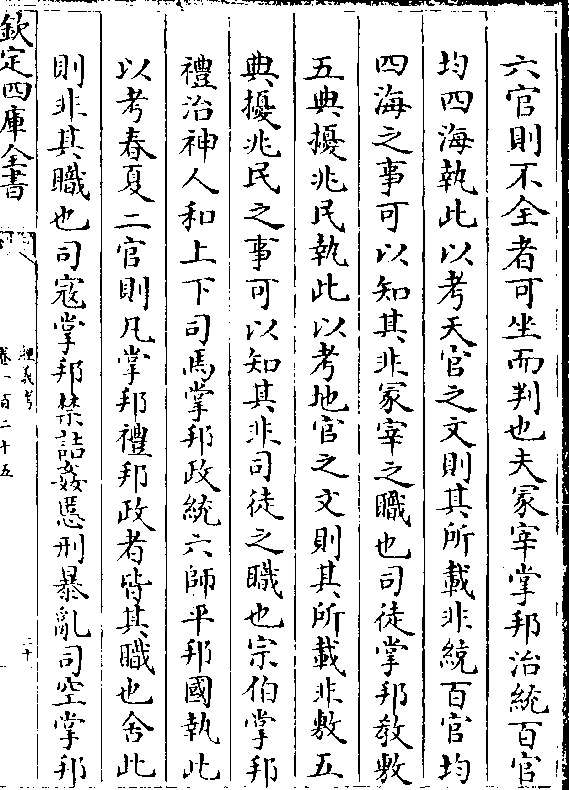 六官則不全者可坐而判也夫冢宰掌邦治統百官
均四海執此以考天官之文則其所載非統百官均
四海之事可以知其非冢宰之職也司徒掌邦敎敷
五典擾兆民執此以考地官之文則其所載非敷五
典擾兆民之事可以知其非司徒之職也宗伯掌邦
禮治神人和上下司馬掌邦政統六師平邦國執此
以考春夏二官則凡掌邦禮邦政者皆其職也舍此
則非其職也司寇掌邦禁詰姦慝刑暴亂司空掌邦
欽定四庫全書
經義考
卷一百二十五
二十